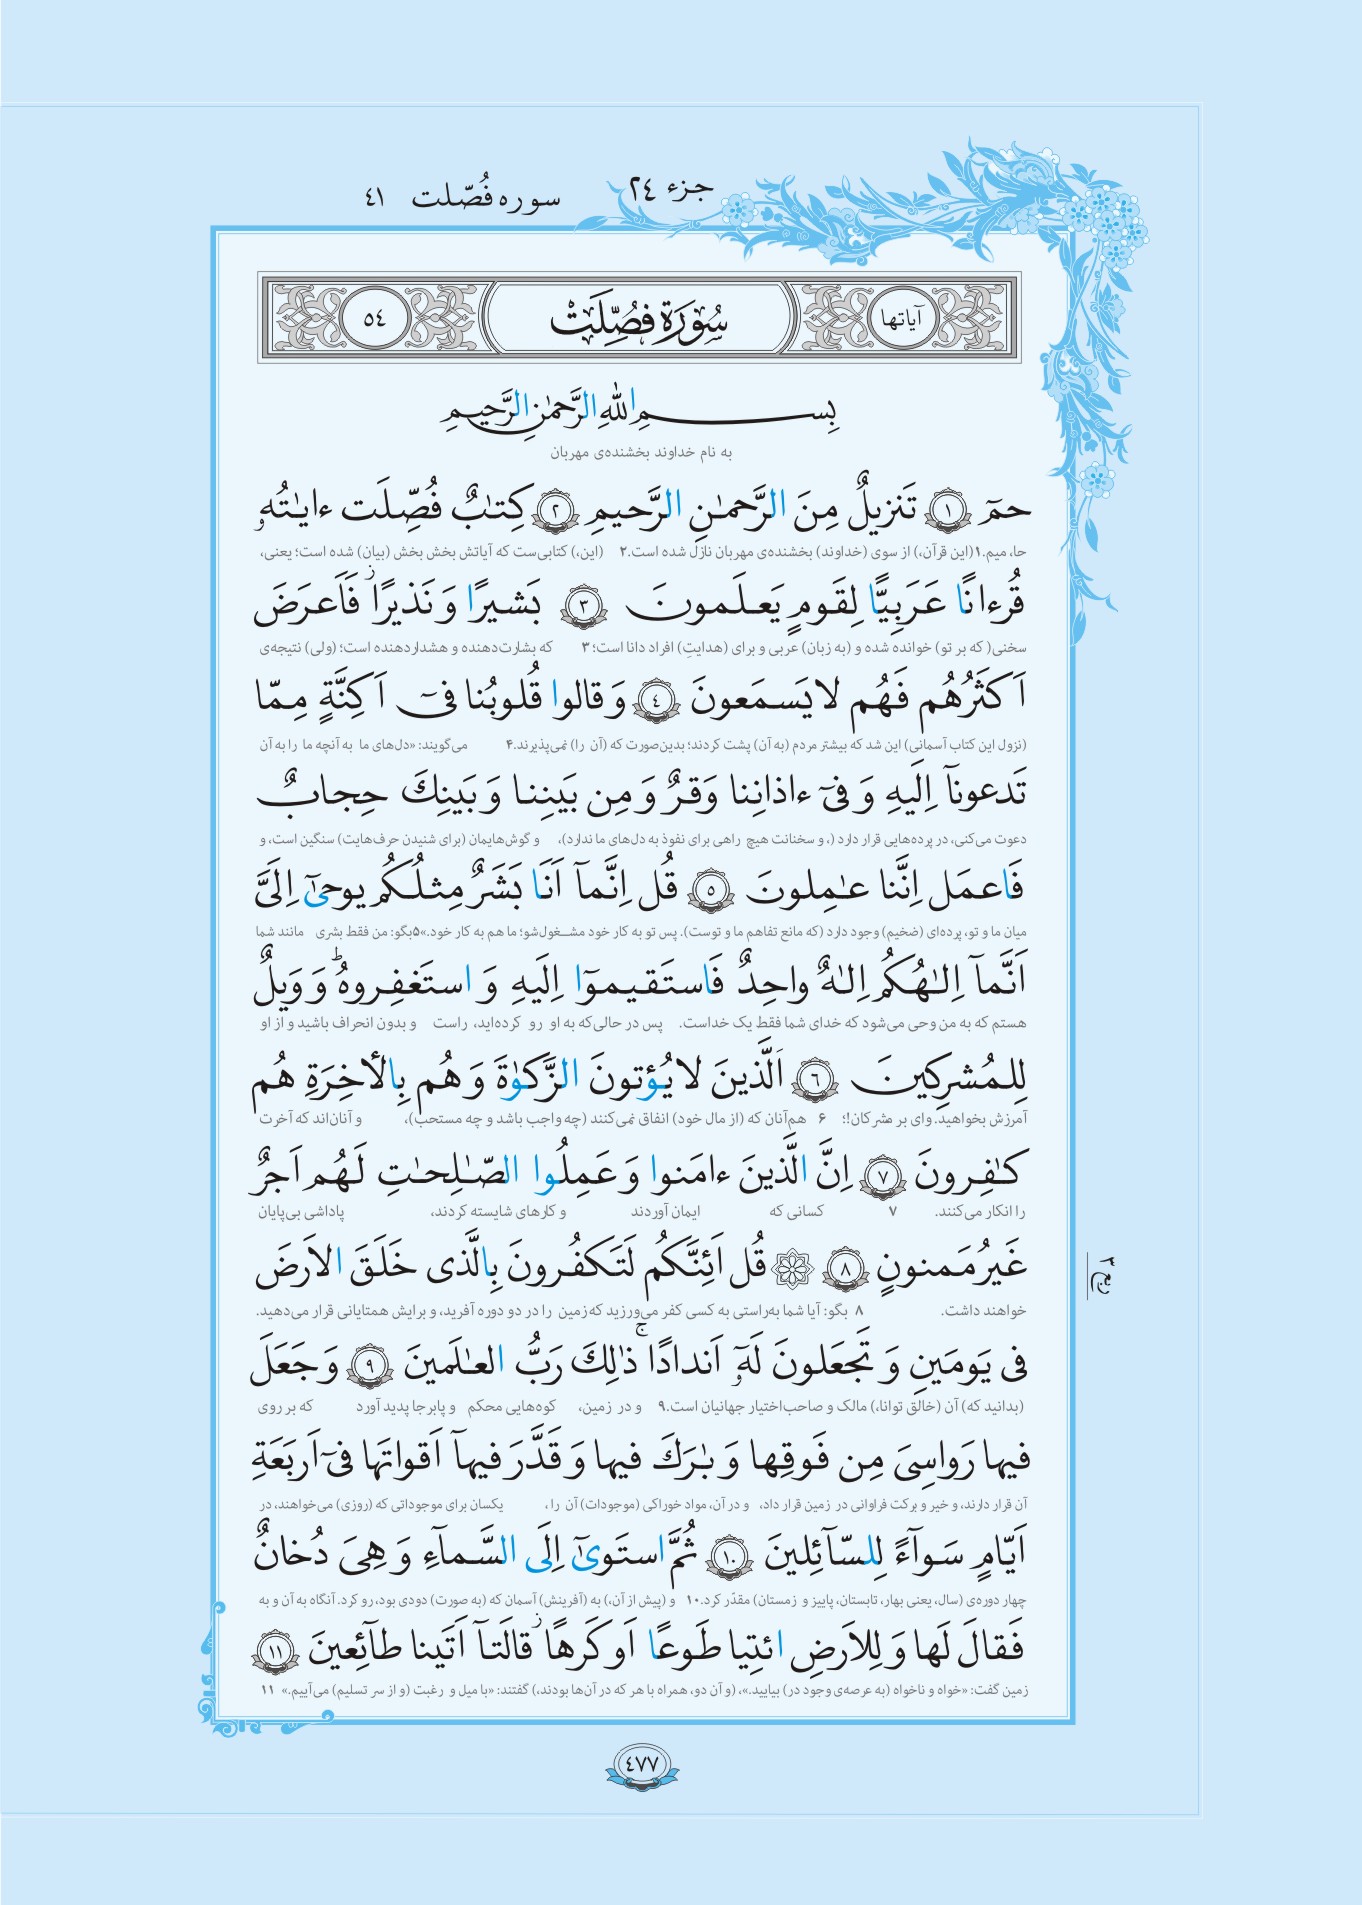 جزء ٢٤
سوره فُصّلت ٤١
آیاتها
سُورَة فُصِّلَتْ
٥٤
بِسمِ اللّٰهِ الرَّحمٰنِ الرَّحیمِ
به نام خداوند بخشنده‌ی مهربان
حمٓ ١ تَنزیلٌ مِنَ الرَّحمٰنِ الرَّحیمِ ٢ کِتٰبٌ فُصِّلَت ءایٰتُهُۥ
حا، میم.۱(این قرآن،) از سوی (خداوند) بخشنده‌ی مهربان نازل شده است.۲ (این،) کتابی‌ست که آیاتش بخش بخش (بیان) شده است؛ یعنی،
قُرءانًا عَرَبِیًّا لِقَومٍ یَعلَمونَ ٣ بَشیرًا وَ نَذیرًا ز فَاَعرَضَ
سخنی( که بر تو) خوانده شده و (به زبان) عربی و برای (هدایتِ) افراد دانا است؛۳ که بشارت‌دهنده و هشداردهنده است؛ (ولی) نتیجه‌ی
اَکثَرُهُم فَهُم لا یَسمَعونَ ٤ وَ قالوا قُلوبُنا فیٓ اَکِنَّةٍ مِمّا
(نزول این کتاب آسمانی) این شد که بیشتر مردم (به آن) پشت کردند؛ بدین‌صورت که (آن را) نمی‌پذیرند.۴ می‌گویند: «دل‌های ما به آنچه ما را به آن
تَدعونآ اِلَیهِ وَ فیٓ ءاذانِنا وَقرٌ وَ مِن بَینِنا وَ بَینِكَ حِجابٌ
دعوت می‌کنی، در پرده‌هایی قرار دارد (، و سخنانت هیچ راهی برای نفوذ به دل‌های ما ندارد)، و گوش‌هایمان (برای شنیدن حرف‌هایت) سنگین است، و
فَاعمَل اِنَّنا عٰمِلونَ ٥ قُل اِنَّمآ اَنَا بَشَرٌ مِثلُکُم یوحیٰٓ اِلَیَّ
میان ما و تو، پرده‌ای (ضخیم) وجود دارد (که مانع تفاهم ما و توست). پس تو به کار خود مشـغول‌شو؛ ما هم به کار خود.»۵بگو: من فقط بشری مانند شما
اَنَّمآ اِلٰهُکُم اِلٰهٌ واحِدٌ فَاستَقیموٓا اِلَیهِ وَ استَغفِروهُ ط وَ وَیلٌ
هستم که به من وحی می‌شود که خدای شما فقط یک خداست. پس در حالی‌که به او رو کرده‌اید، راست و بدون انحراف باشید و از او
لِلمُشرِکینَ ٦ اَلَّذینَ لا یُؤتونَ الزَّکوٰةَ وَ هُم بِالأخِرَةِ هُم
آمرزش بخواهید. وای بر مشرکان!؛ ۶ هم‌آنان که (از مال خود) انفاق نمی‌کنند (چه واجب باشد و چه مستحب)، و آنان‌اند که آخرت
کٰفِرونَ ٧ اِنَّ الَّذینَ ءامَنوا وَ عَمِلُوا الصّٰلِحٰتِ لَهُم اَجرٌ
را انکار می‌کنند. ۷ کسانی که ایمان آوردند و کارهای شایسته کردند، پاداشی بی‌پایان
غَیرُ مَمنونٍ ٨ قُل اَئِنَّکُم لَتَکفُرونَ بِالَّذی خَلَقَ الاَرضَ
خواهند داشت. ۸ بگو: آیا شما به‌راستی به کسی کفر می‌ورزید که زمین را در دو دوره آفرید، و برایش همتایانی قرار می‌دهید.
فی یَومَینِ وَ تَجعَلونَ لَهُۥٓ اَندادًا ج ذٰلِكَ رَبُّ العٰلَمینَ ٩ وَ جَعَلَ
(بدانید که) آن (خالق توانا،) مالک و صاحب‌اختیار جهانیان است.۹ و در زمین، کوه‌هایی محکم و پابرجا پدید آورد که بر روی
فیها رَواسِیَ مِن فَوقِها وَ بٰرَكَ فیها وَ قَدَّرَ فیهآ اَقواتَها فیٓ اَربَعَةِ
آن قرار دارند، و خیر و برکت فراوانی در زمین قرار داد، و در آن، مواد خوراکی (موجودات) آن را، یکسان برای موجوداتی که (روزی) می‌خواهند، در
اَیّامٍ سَوآءً لِلسّآئِلینَ ١٠ ثُمَّ استَویٰٓ اِلَی السَّمآءِ وَ هِیَ دُخانٌ
چهار دوره‌ی (سال، یعنی بهار، تابستان، پاییز و زمستان) مقدّر کرد.۱۰ و (پیش از آن،) به (آفرینش) آسمان که (به صورت) دودی بود، رو کرد. آنگاه به آن و به
فَقالَ لَها وَ لِلاَرضِ ائتِیا طَوعًا اَو کَرهًا ز قالَتآ اَتَینا طآئِعینَ ١١
زمین گفت: «خواه و ناخواه (به عرصه‌ی وجود در) بیایید.»، (و آن دو، همراه با هر که در آن‌ها بودند،) گفتند: «با میل و رغبت (و از سر تسلیم) می‌آییم.» ۱۱
٤٧٧